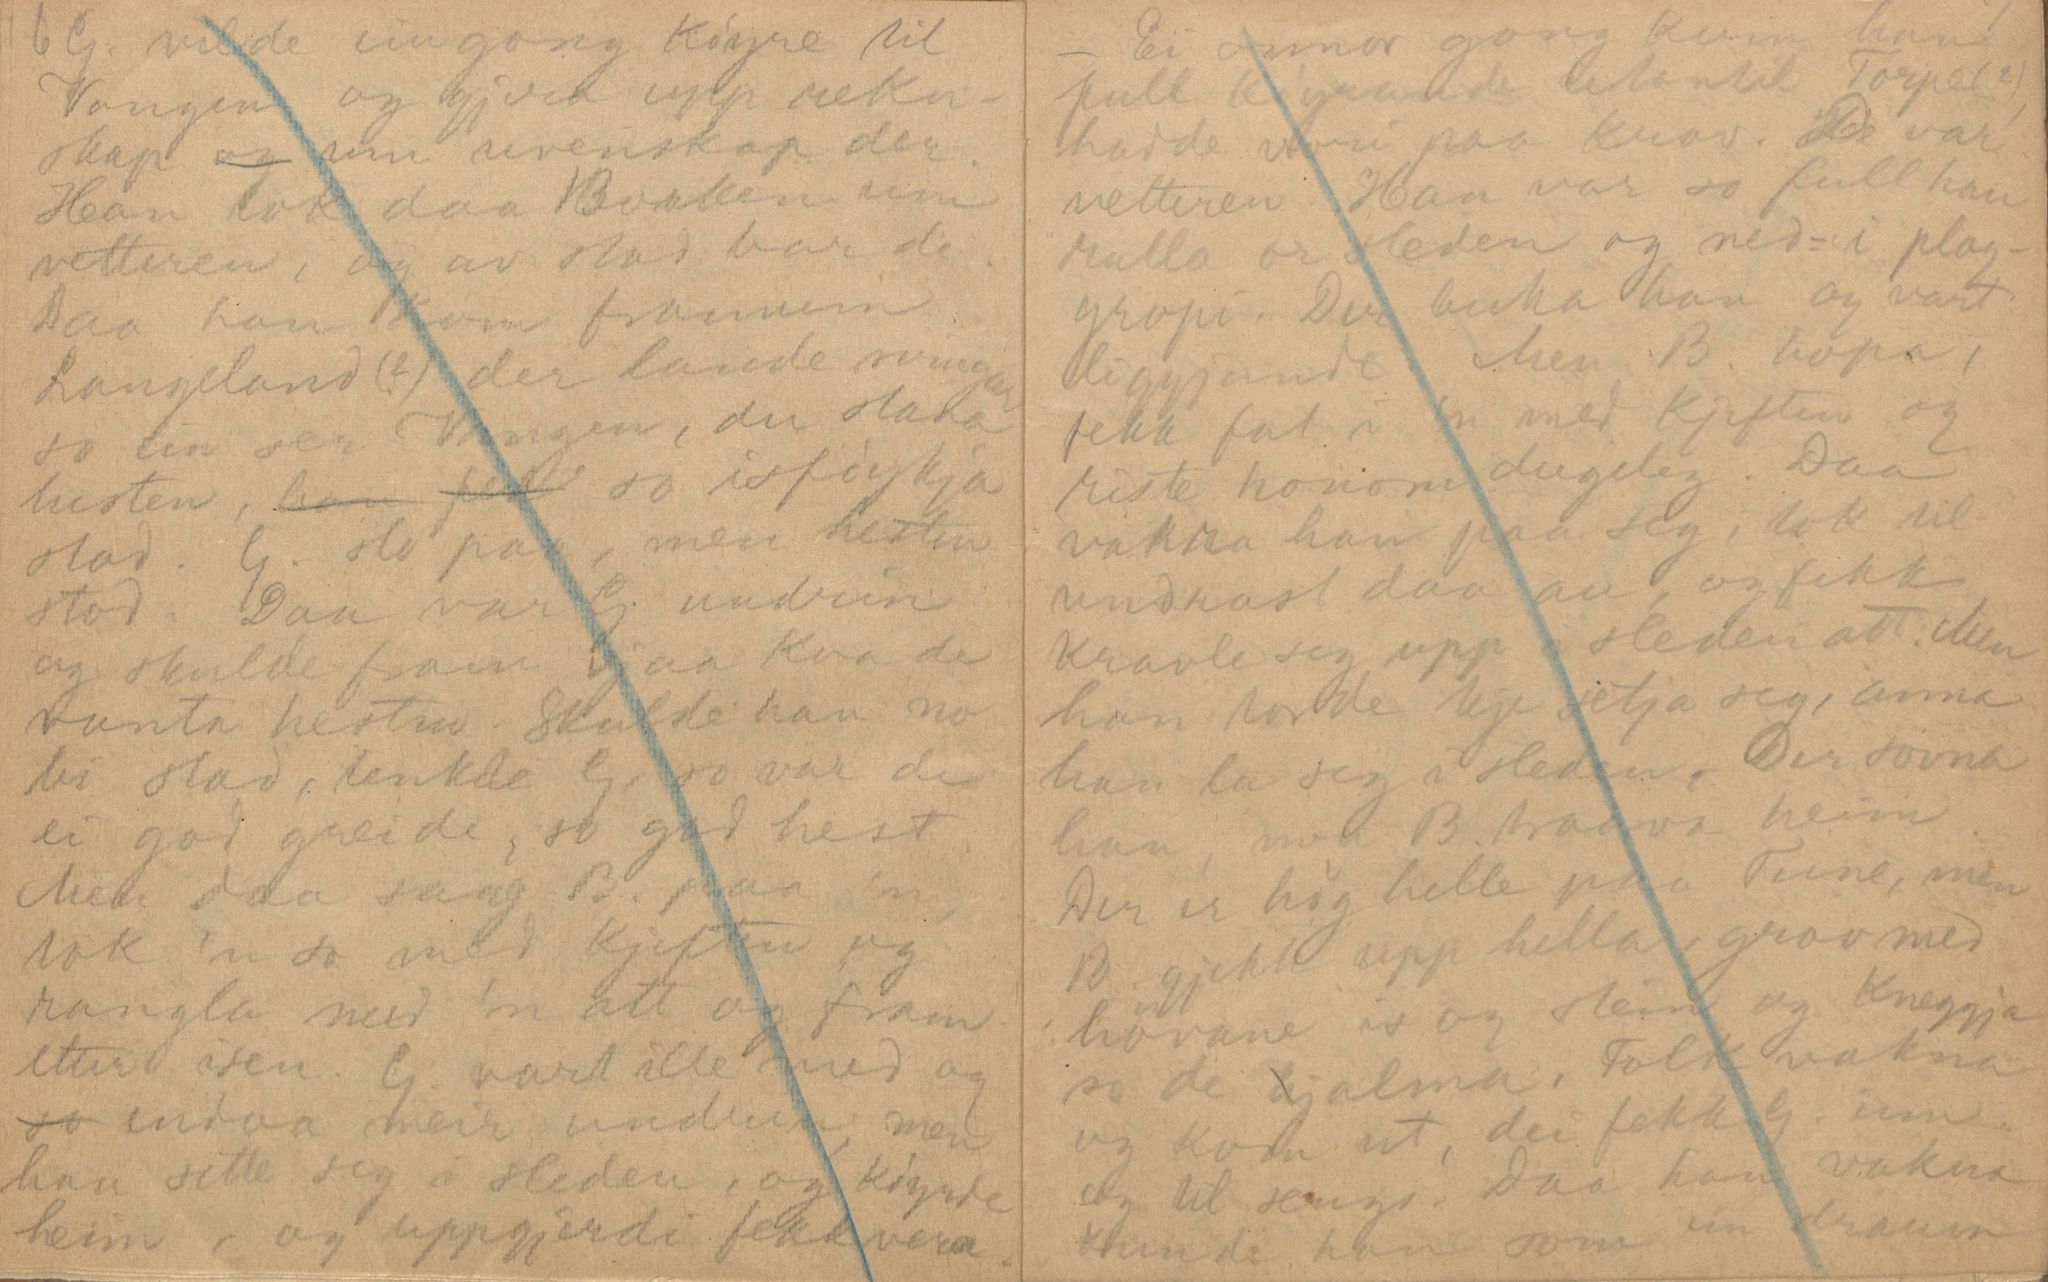 6 G. vilde ein gong köyre til
Vangen og gjera upp rekn-
skap og um uvenskap der.
Han tok daa Borken um
vetteren, og av stad bar de.
Daa han kom framum
Langeland (?) der lande svingar
so ein ser Vangen, du stana
hesten, han fekk so isföykja
stod. G. slo paa, men hesten
stod. Daa var G. undren
og skulde fram sjaa kva de
vanta hesten. Skulde han no
bi stad, tenkde G, so var de
ei god greide, so god hest.
Men daa saag B. paa 'n,
tok 'n so med kjeften og
rangla med 'n att og fram
etter isen. G. vart ille med og
so endaa meir undren, men
han sette seg i sleden, og köyrde
heim, og uppgjerdi fekk vera.
7
– Ei onnor gong kom han
full köyrande utantil Torpe (?),
hadde vori paa krav. De var
vetteren. Han var so full han
rulla or sleden og ned i plog-
gropi. Der buka han og vart
liggjande. Men B. hopa,
fekk fat i 'n med kjeften og
riste honom dugeleg. Daa
vakna han paa seg, tok til
undrast daa au, og fekk
kravle seg upp i sleden att. Men
han torde kje setja seg, anna
han la seg i sleden. Der sovna
han, noa B. traava heim.
Der er hög helle paa Tune, men
B. gjekk upp hella, grov med
hovane i is og stein og kneggja
so de hjalma. Folk vakna
og kom ut, dei fekk G. inn
og til sengs. Daa han vakna
kunde han som ein draum